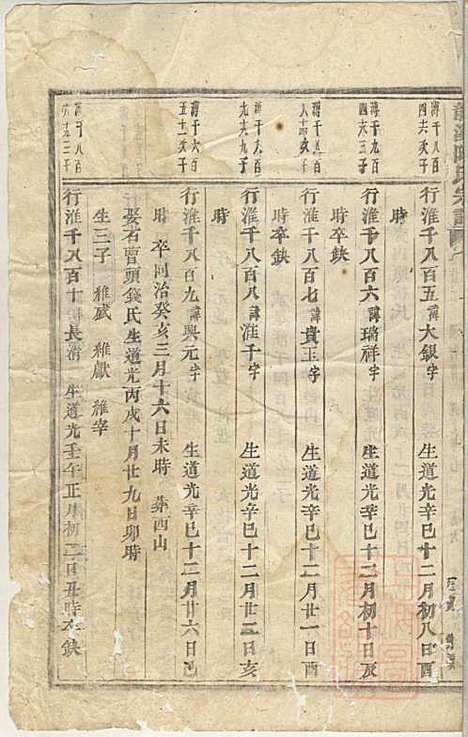 溥千八百四六次子
行淮千八百五諱大銀字 生道光辛巳十二月初八日酉
時
溥千八百四六三子
行淮千八百六諱瑞祥字 生道光辛巳十二月初十日辰
時卒缺
行淮千八百七諱貴玉字 生道光辛巳十二月廿一日酉
時卒缺
行淮千八百八諱淮千字 生道光辛巳十二月廿二日亥
時
溥千六百五十二次子
行淮千八百九諱興元字 生道光辛巳十二月廿六日巳
時 卒同治癸亥三月十六日未時 葬西山
娶石曹頭錢氏生道光丙戌十月廿九日卯時
生三子 雍威 雍獻 雍宰
行淮千八百十諱長 生道光壬午正月初二日丑時卒缺